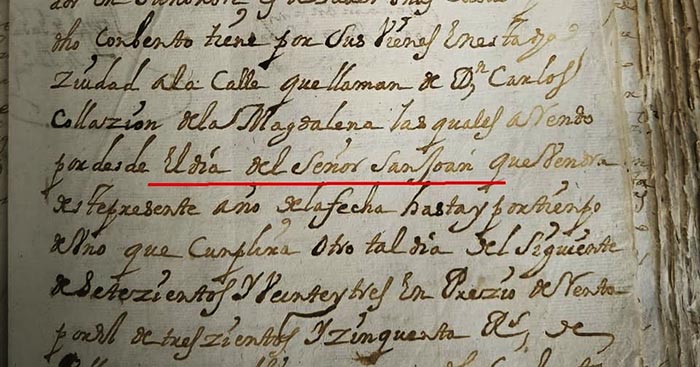 dho Conbento tiene por sus Vienes en esta dha
Ziudad a la Calle que llaman de Dn Carlos
Collazion de la Magdalena las quales arriendo
por desde El dia del Señor San Joan que Vendra
deste presente año de la fecha hasta y por tiempo
de Uno que Cunplira Otro tal dia del Siguiente
de Setezientos Y Veinte y tres En Prezio de Rento
por el de treszientos Y zinquenta Rs, de